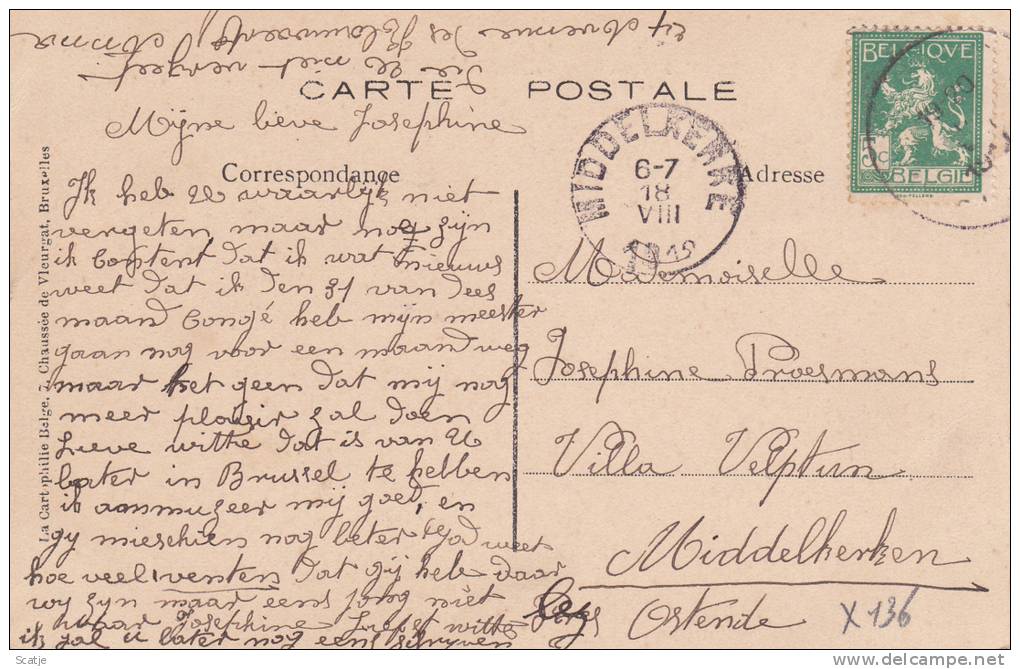 CARTE POSTALE
Correspondance
Adresse
Mijne lieve Josephine
Ik heb U waarlijk niet
vergeten maar nog zijn
ik Content dat ik wat nieuws
weet dat ik den 31 van dees
maand Congé heb mijn meester
gaan nog voor een maand weg
maar het geen dat mij nog
meer plaisir zal doen
Lieve withe dat is van U
later in Brussel te hebben
ik aammuzeer mij goed, en
gy mieschien nog beter God weet
hoe veel venten dat gij heb daar
wy zyn maar eens jong niet
waar Josephine
ik zal u later nog eens schryven
Mademoiselle
Josephine Proesmans
Villa Velptun
Middelkerken
Ostende
X 136
BELGIQUE
5c
BELGIË
MIDDELKERKE
6-7
18
VIII
1912
La Cartophilie Belge, Chaussée de Vleurgat, Bruxelles
Scatje
delcampe.net